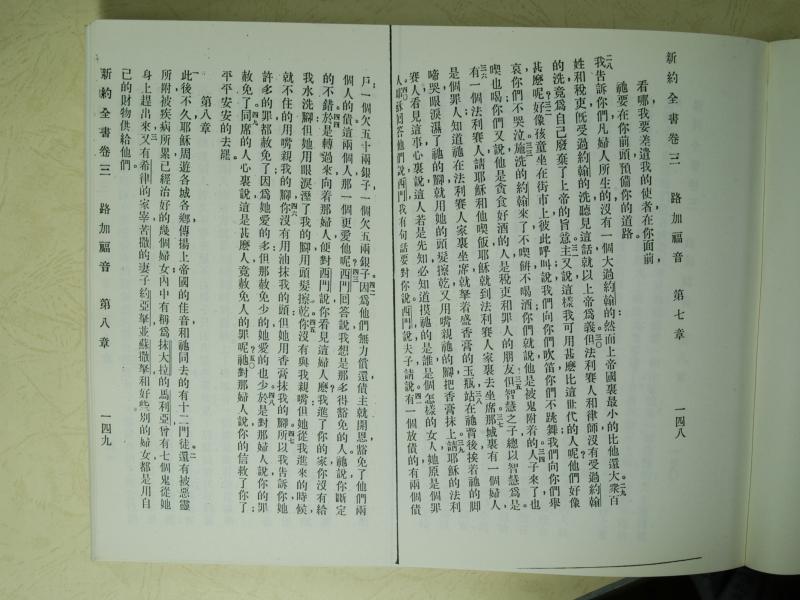 新約全書卷三 路加福音 第七章 一四八
看哪我要差遣我的使者在你面前、
祂要在你前頭預備你的道路。
二八我告訴你們凡婦人所生的沒有一個大過約翰的然而上帝國裏最小的比他還大。二九衆百
姓和稅吏旣受過約翰的洗聽見這話就以上帝爲義三〇但法利賽人和律師沒有受過約翰
的洗竟爲自己廢棄了上帝的旨意。三一主又說這樣我可用甚麽比這世代的人呢他們好像
甚麽呢三二好像孩童坐在街市上彼此呼叫說我們向你們吹笛你們不跳舞我們向你們舉
哀你們不哭泣。三三施洗的約翰來了不喫餠不喝酒你們就說他是被鬼附着的。三四人子來了也
喫也喝你們又說他是貪食好酒的人是稅吏和罪人的朋友。三五但智慧之子總以智慧爲是。
三六有一個法利賽人請耶穌和他喫飯耶穌就到法利賽人家裏去坐席。三七那城裏有一個婦人
是個罪人知道祂在法利賽人家裏坐席就拏着盛香膏的玉瓶三八站在祂背後挨着祂的脚
啼哭眼淚濕了祂的脚就用她的頭髮擦乾又用嘴親祂的脚把香膏抹上。三九請耶穌的法利
賽人看見這事心裏說這人若是先知必知道摸祂的是誰是個怎樣的女人她原是個罪
人。四〇耶穌回答他們說西門我有句話要對你說西門說夫子請說。四一有一個放債的有兩個債
戶一個欠五十兩銀子一個欠五兩銀子四二因爲他們無力償還債主就開恩豁免了他們兩
個人的債這兩個人那一個更愛他呢四三西門回答說我想是那多得豁免的人祂說你斷定
的不錯。四四於是轉過來向着那婦人便對西門說你看見這婦人麽我進了你的家你沒有給
我水洗脚但她用眼淚溼了我的脚用頭髮擦乾。四五你沒有與我親嘴但她從我進來的時候
就不住的用嘴親我的脚。四六你沒有用油抹我的頭但她用香膏抹我的脚。四七所以我告訴你她
許多的罪都赦免了因爲她愛的多但那赦免少的她愛的也少。四八於是對那婦人說你的罪
赦免了。四九同席的人心裏說這是甚麽人竟赦免人的罪呢五〇祂對那婦人說你的信救了你了
平平安安的去罷。
第八章
一此後不久耶穌周遊各城各鄉傳揚上帝國的佳音和祂同去的有十二門徒。二還有被惡靈
所附被疾病所累已經治好的幾個婦女內中有稱爲抹大拉的馬利亞曾有七個鬼從她
身上趕出來。三又有希律的家宰苦撒的妻子約亞拏並蘇撒拏和好些別的婦女都是用自
己的財物供給他們。
新約全書卷三 路加福音 第八章 一四九